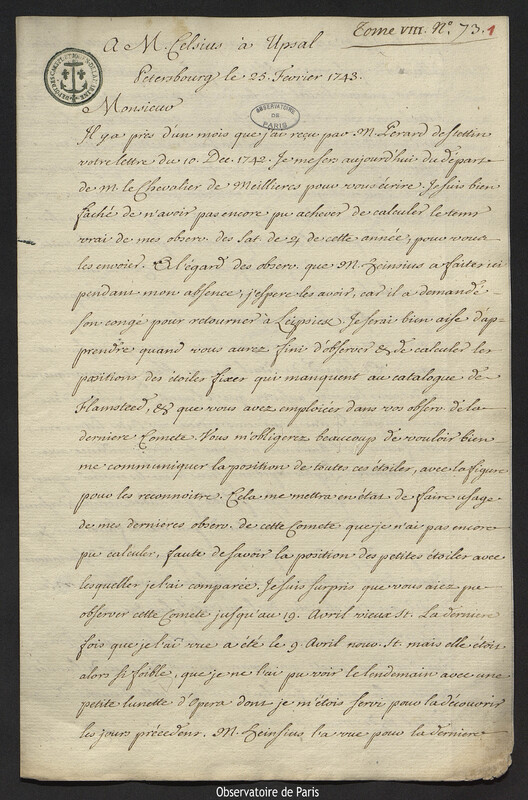 Tome VIII. N.º 73. 1
A M. Celsius à Upsal
Petersbourg le 25. Fevrier 1743.
OBSERVATOIRE DE PARIS
Monsieur
Il y a près d'un mois que j'ai reçu par M. Perard de Stettin
votre lettre du 10. Dec. 1742. Je me sers aujourd'hui du départ
de M. le Chevalier de Meillieres pour vous écrire. Je suis bien
faché de n'avoir pas encore pu achever de calculer le tems
vrai de mes observ. des Sat. de ♃ de cette année, pour vous
les envoier. A l'égard des observ. que M. Heinsius a faites ici
pendant mon absence, j'espere les avoir, car il a demandé
son congé pour retourner à Leipsick. Je serai bien aise d'ap-
prendre quand vous aurez fini d'observer & de calculer les
positions des étoiles fixes qui manquent au catalogue de
Flamsteed, & que vous avez emploiées dans vos observ. de la
derniere Comete. Vous m'obligerez beaucoup de vouloir bien
me communiquer la position de toutes ces étoiles, avec la figure
pour les reconnoitre. Cela me mettra en état de faire usage
de mes dernieres observ. de cette Comete que je n'ai pas encore
pu calculer, faute de savoir la position des petites étoiles avec
lesquelles je l'ai comparée. Je suis surpris que vous aiez pu
observer cette Comete jusqu'au 19. Avril vieux St. La derniere
fois que je l'ai vue a été le 9. Avril nouv. St. mais elle étoit
alors si foible, que je ne l'ai pu voir le lendemain avec une
petite lunette d'Opera dont je m'étois servi pour la découvrir
les jours précédens. M. Heinsius l'a vue pour la derniere
Observatoire de Paris